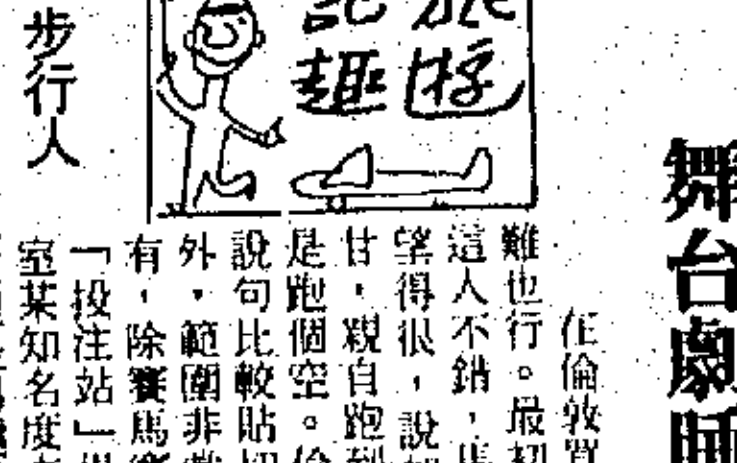 舞台劇
旅遊
記趣
步行人
在倫敦買
難也行。最初
這人不錯，馬
望得很，說
甘，親自跑到
是跑個空。倫
說句比較貼切
外，範圍非
有，除賽馬賽
「投注站」
室某知名度